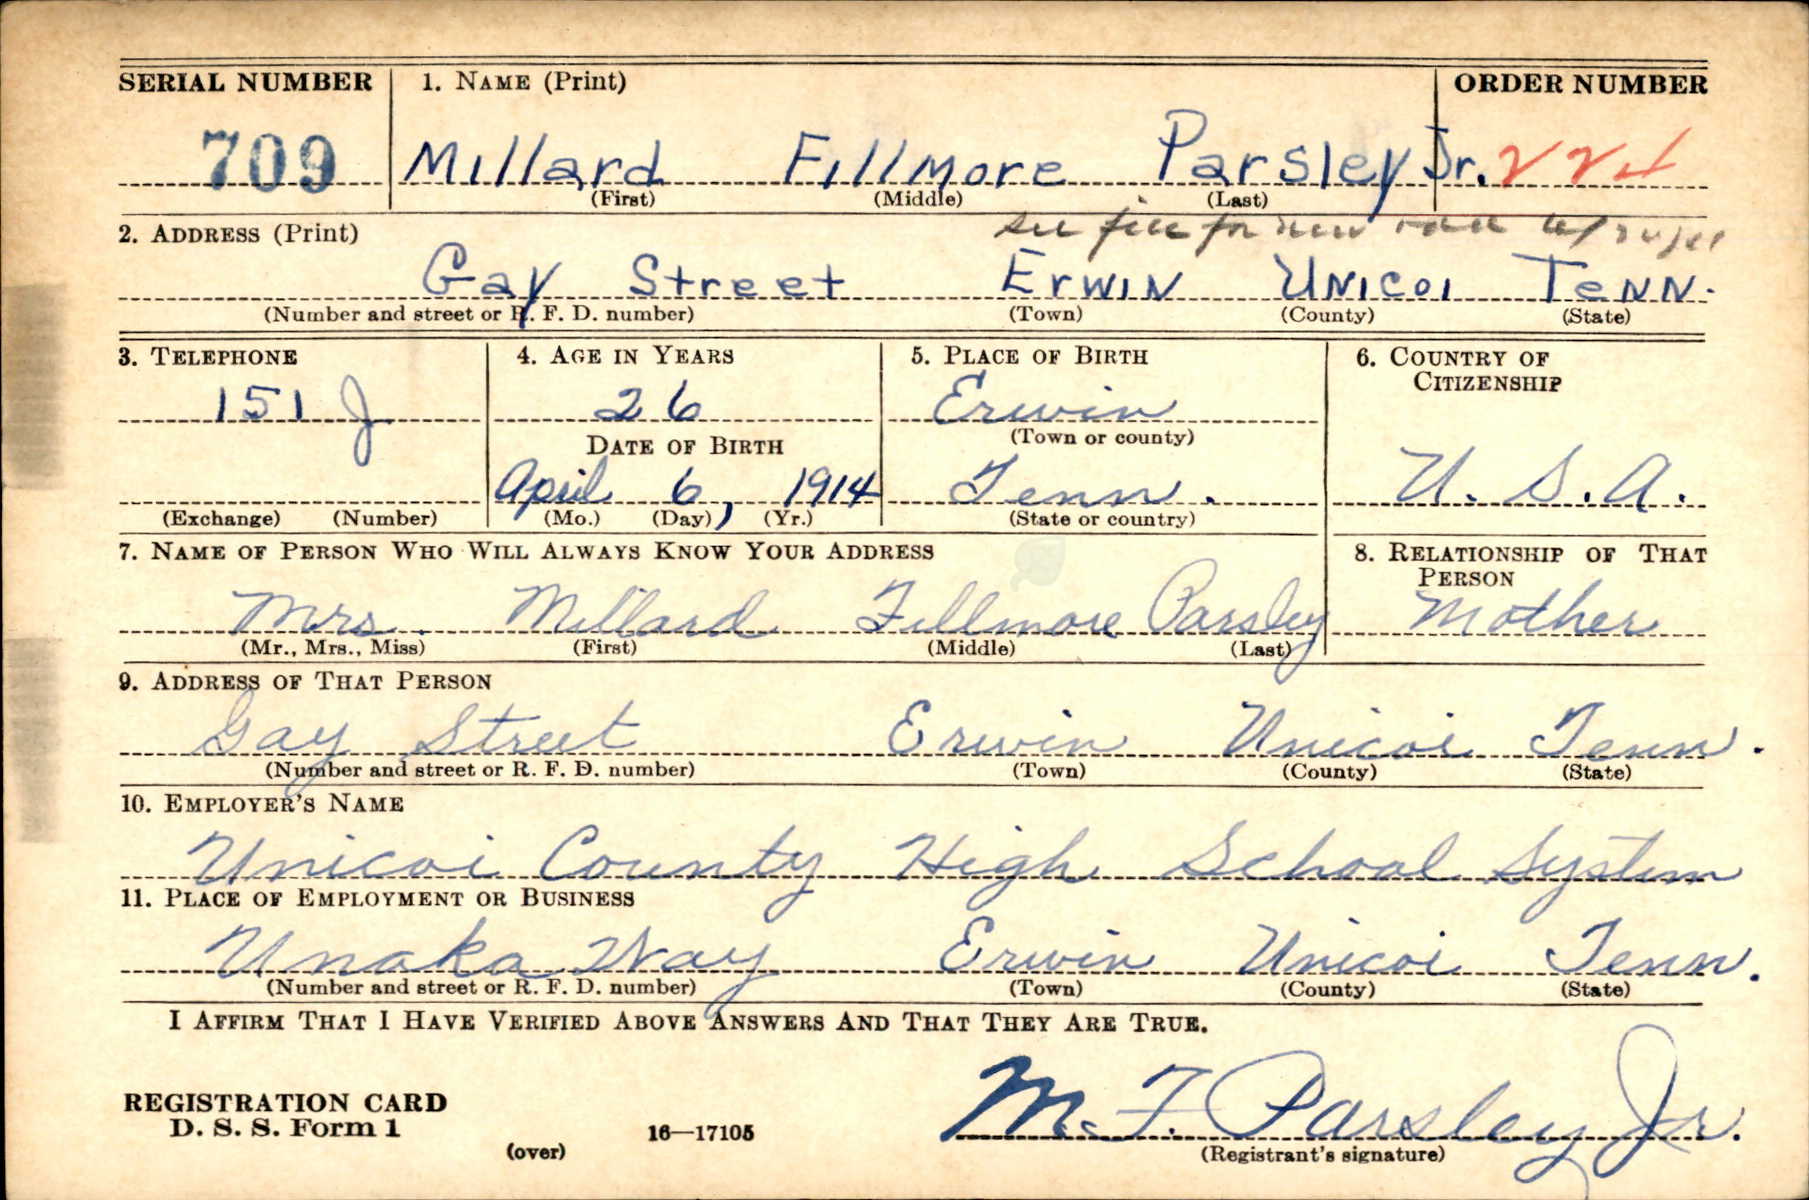 SERIAL NUMBER 1. NAME (Print) ORDER NUMBER
709 Millard Fillmore Parsley Jr. 224
(First) (Middle) (Last)
2. ADDRESS (Print) see file for new
Gay Street Erwin Unicoi Tenn.
(Number and street or R. F. D. number) (Town) (County) (State)
3. TELEPHONE 4. AGE IN YEARS 5. PLACE OF BIRTH 6. COUNTRY OF
CITIZENSHIP
151 J 26 Erwin
DATE OF BIRTH (Town or county)
April 6, 1914 Tenn. U. S. A.
(Exchange) (Number) (Mo.) (Day) (Yr.) (State or country)
7. NAME OF PERSON WHO WILL ALWAYS KNOW YOUR ADDRESS 8. RELATIONSHIP OF THAT
PERSON
Mrs. Millard Fillmore Parsley Mother
(Mr., Mrs., Miss) (First) (Middle) (Last)
9. ADDRESS OF THAT PERSON
Gay Street Erwin Unicoi Tenn.
(Number and street or R. F. D. number) (Town) (County) (State)
10. EMPLOYER'S NAME
Unicoi County High School System
11. PLACE OF EMPLOYMENT OR BUSINESS
Unaka Way Erwin Unicoi Tenn.
(Number and street or R. F. D. number) (Town) (County) (State)
I AFFIRM THAT I HAVE VERIFIED ABOVE ANSWERS AND THAT THEY ARE TRUE.
REGISTRATION CARD
D. S. S. Form 1 M. F. Parsley Jr.
(over) 16—17105 (Registrant's signature)